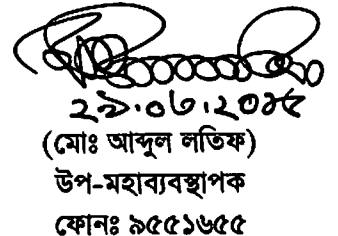 ২৯.০৬.২০১৫
(মোঃ আব্দুল লতিফ)
উপ-মহাব্যবস্থাপক
ফোনঃ ৯৫৫১৬৫৫